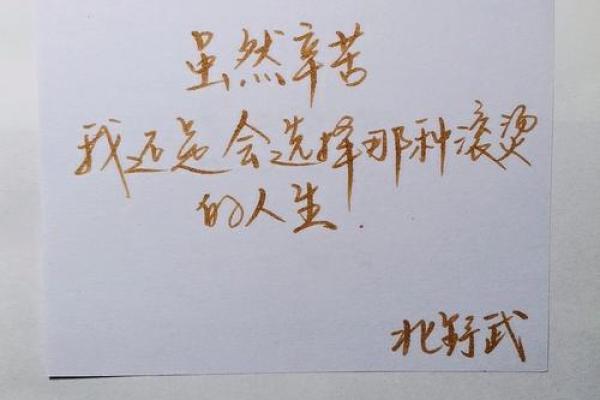 虽然辛苦
我还是会选择那种滚烫
的人生
北野武